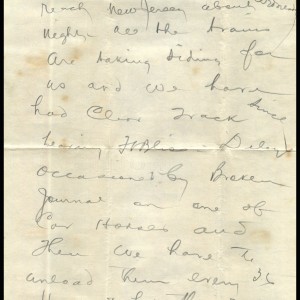 reach New Jersey about
night. all the trains
are taking siding for
us and we have
had Clear Track since
leaving Delay
occasioned by Broken
Journal on one of
Car Horses and
then we have to
unload them every 36